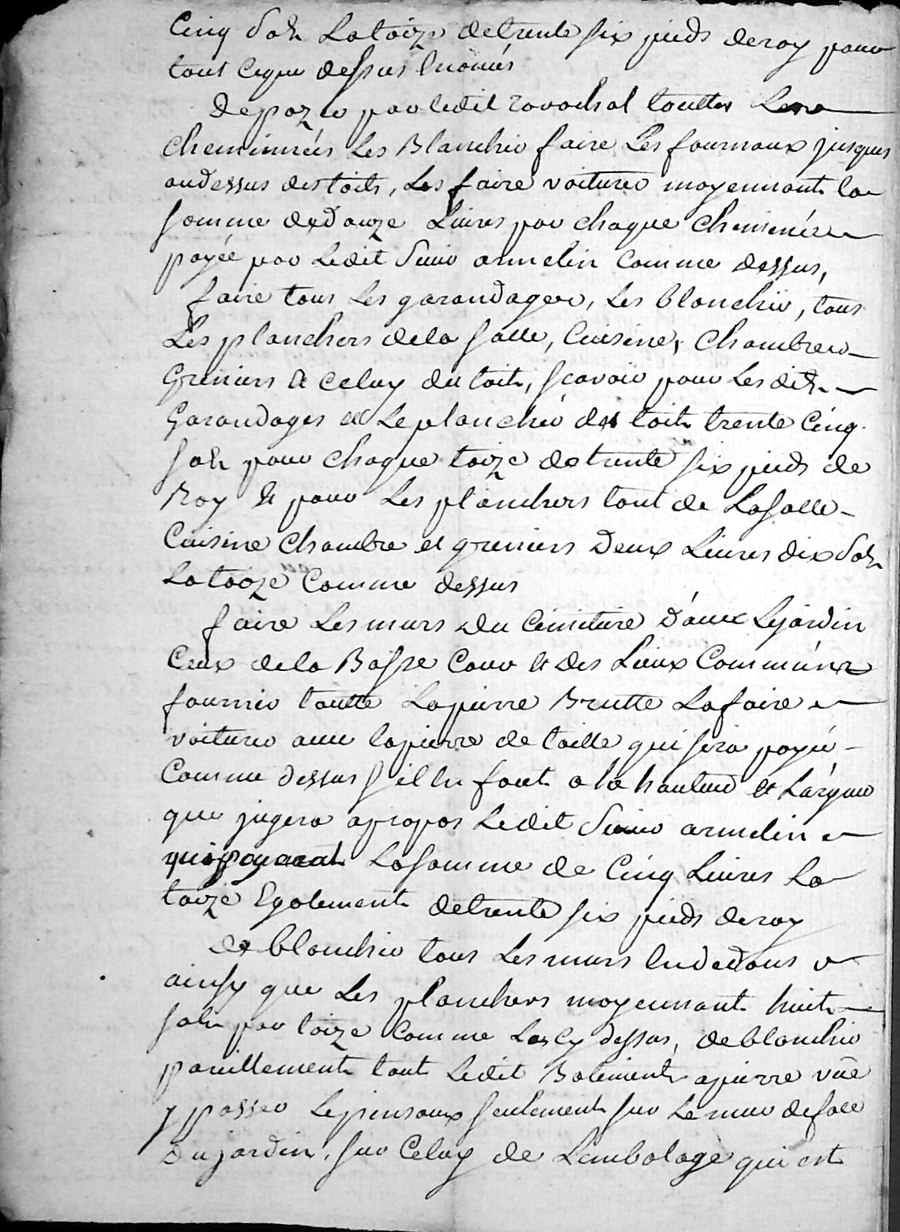 Cinq Sols La toize de trente six pieds de roy pour
tout ce que dessus énoncés
De pozer par ledit Ravachal touttes Les
Cheminnées Les Blanchir faire Les fournaux jusques
audessus des toits, Les faire voiturer moyennant la
somme de douze Livres par chaque cheminée
payée par Ledit Sieur armelin Comme dessus,
faire tous Les garandages, Les blanchir, tous
Les planchers de la Salle, Cuisine, Chambres
Greniers et Celuy du toit, scavoir pour Les dits
Garandages et Le planché du toit trente Cinq
sols pour chaque toize de trente six pieds de
Roy et pour Les planchers tout de La Salle
Cuisine Chambre et greniers Deux Livres dix Sols
La toize Comme dessus
faire Les murs du Cimitiere D'avec Le jardin
Ceux de la Basse Cour et Des Lieux Communs
fournir toutte La pierre Brutte La faire
voiturer avec la pierre de taille qui sera payée
Comme dessus s'il en faut a la hauteur et Largeur
que jugera apropos Ledit Sieur armelin
qui payerat La somme de Cinq Livres La
toize Egalement de trente six pieds de roy
de blanchir tous Les murs En dedans
ainsy que Les planchers moyennant huit
sols par toize Comme Le cy dessus, de blanchir
pareillement tout Ledit Batiment a pierre vüe
y passer Le pinsaux seulement sur Le mur de face
Du jardin, sur Celuy de L'ambolage qui est